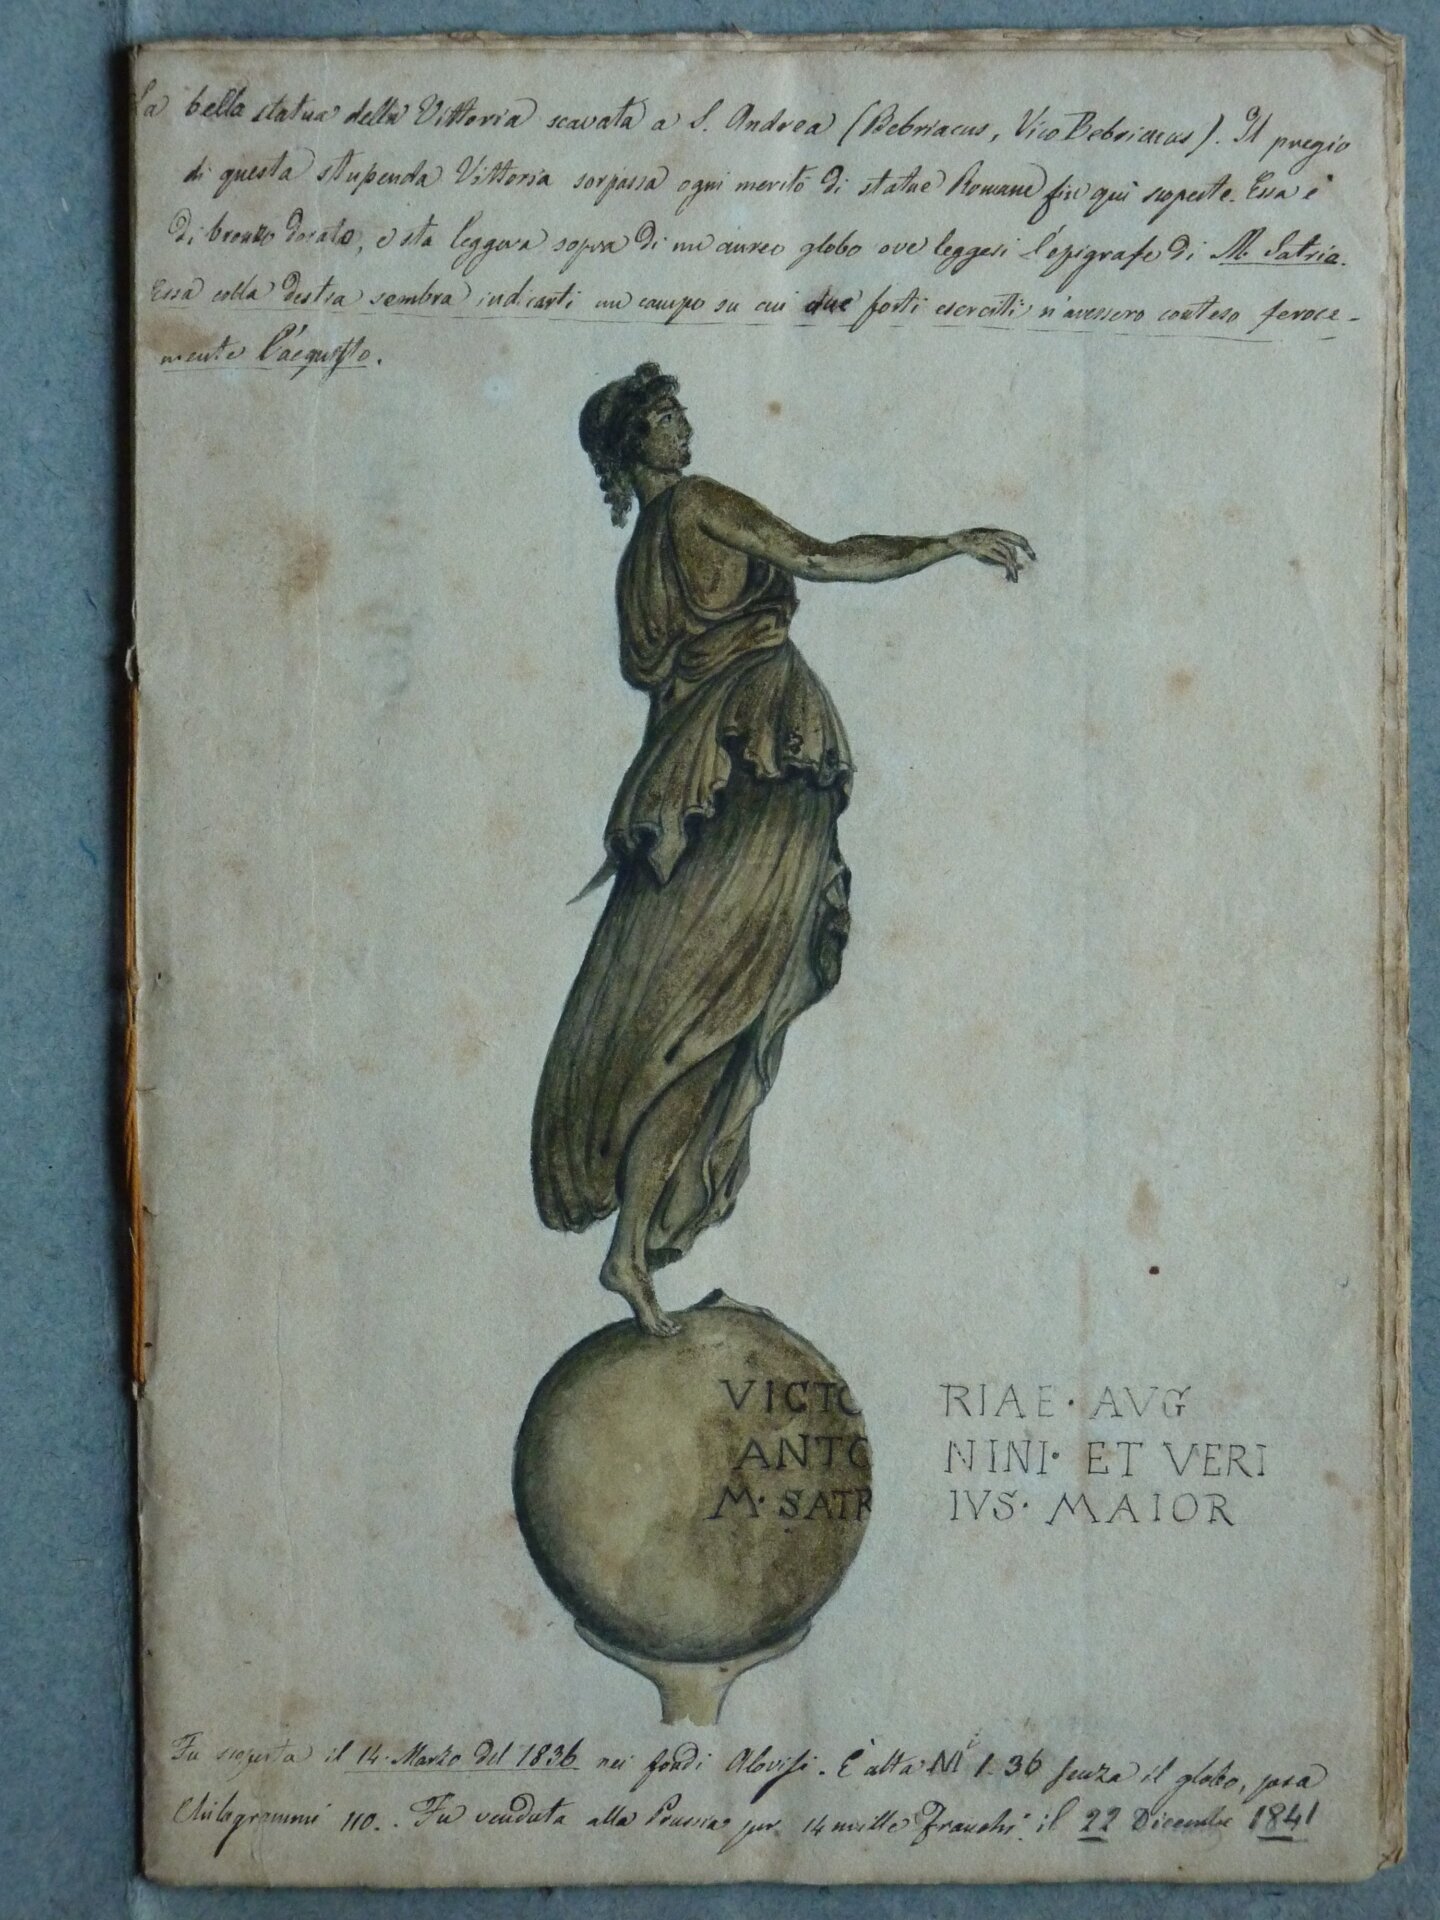 La bella statua della Vittoria scavata a S. Andrea (Bebriacus, Vico Bebriacus). Il pregio
di questa stupenda Vittoria sorpassa ogni merito di statue Romane fin quì scoperte. Essa è
di bronzo dorato, e sta leggera sopra di un aureo globo ove leggesi l'epigrafe di M. Satrio.
Essa colla destra sembra indicarti un campo su cui due forti eserciti n'avessero conteso feroce-
mente l'acquisto.
VICTO RIAE· AVG
ANTO NINI· ET VERI
M· SATR IVS· MAIOR
Fu scoperta il 14. Marzo del 1836 nei fondi Alovisi. È alta M.i 1. 36 senza il globo, pesa
Chilogrammi 110.. Fu venduta alla Prussia per 14 mille Franchi il 22 Dicembre 1841